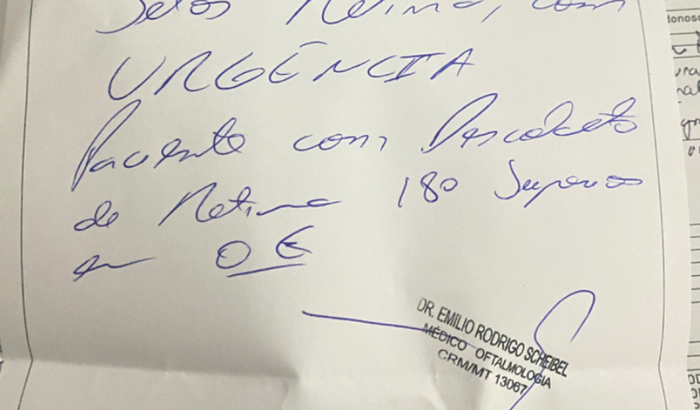 Setor Retina, com
URGÊNCIA
Paciente com Descolamento
de Retina 180 Superior
em OE
DR. EMILIO RODRIGO SCHEIBEL
MÉDICO OFTALMOLOGIA
CRM/MT 13067